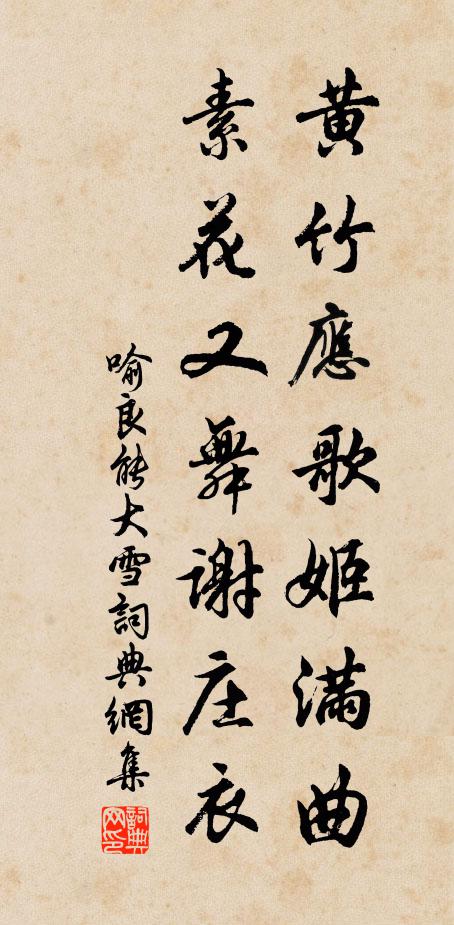 黄竹應歌姬滿曲
素花又舞謝庄衣
喻良能大雪詞典網集
詞典网印